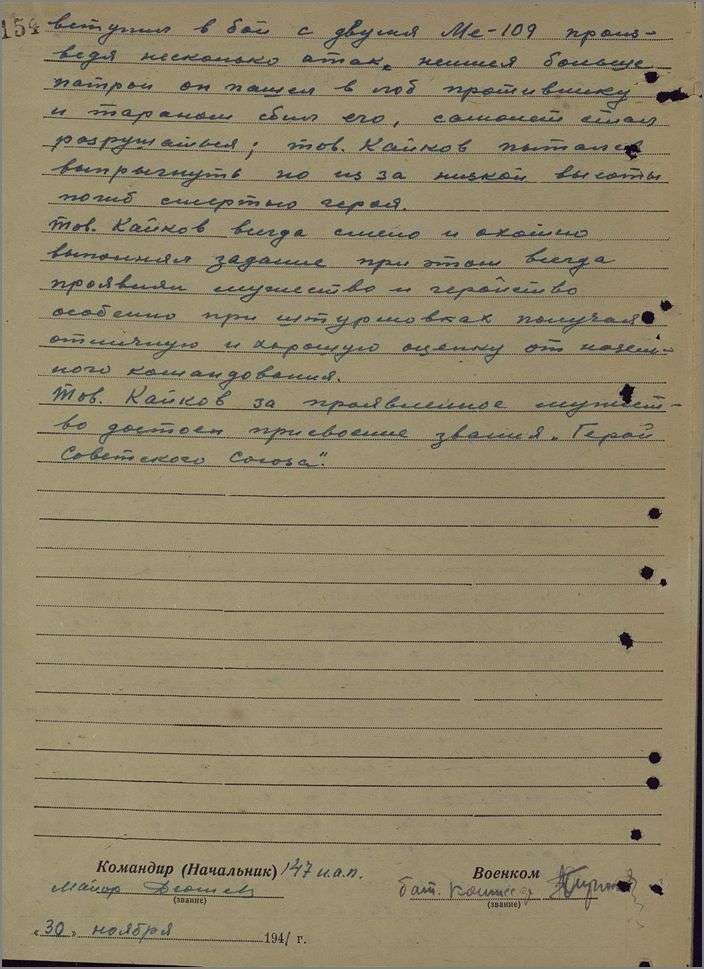 154
вступил в бой с двумя Ме-109 произ-
ведя несколько атак, неимея больше
патрон он пошел в лоб противнику
и тараном сбил его, самолет стал
разрушаться; тов. Кайков пытался
выпрыгнуть но из за низкой высоты
погиб смертью героя.
Тов. Кайков всегда смело и охотно
выполнял задание при этом всегда
проявлял мужество и геройство
особенно при штурмовках получая
отличную и хорошую оценку от назем-
ного командования.
Тов. Кайков за проявленное мужест-
во достоен присвоение звания „Герой
Советского Союза".
Командир (Начальник) 147 и.а.п.
Военком
майор
бат. комиссар
(звание)
(звание)
„30" ноября 1941 г.